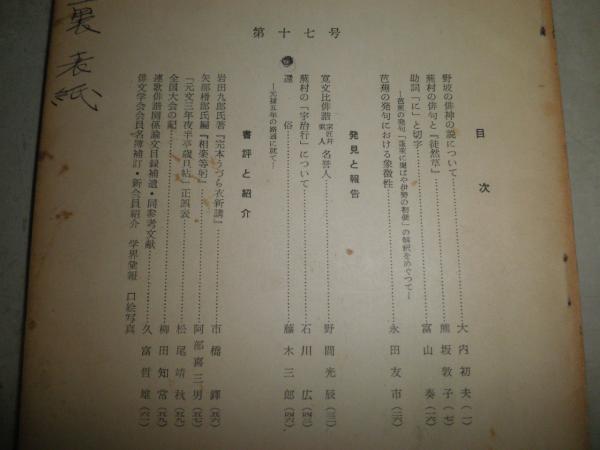 裏表紙
第十七号
目次
野坡の俳神の説について 大内初夫(一)
蕪村の俳句と『徒然草』 熊坂敦子(七)
助詞「に」と切字 富山奏(一六)
―芭蕉の発句「蓬萊に聞ばや伊勢の初便」の解釈をめぐつて―
芭蕉の発句における象徴性 永田友市
発見と報告
寛文比俳諧宗匠并素人名誉人 野間光辰(三一)
蕪村の「宇治行」について 石川広(四一)
還俗 藤木三郎(四六)
―元禄五年の路通に就て―
書評と紹介
岩田九郎氏著『完本うづら衣新講』 市橋鐸(五六)
矢部榜郎氏編『相楽等躬』 阿部喜三男(五七)
「元文三年夜半亭歳旦帖」正誤表 松尾靖秋(五九)
全国大会の記 柳田知常(五九)
連歌俳諧関係論文目録補遺・同参考文献 久富哲雄(六一)
俳文学会会員名簿補訂・新会員紹介 学界彙報 口絵写真